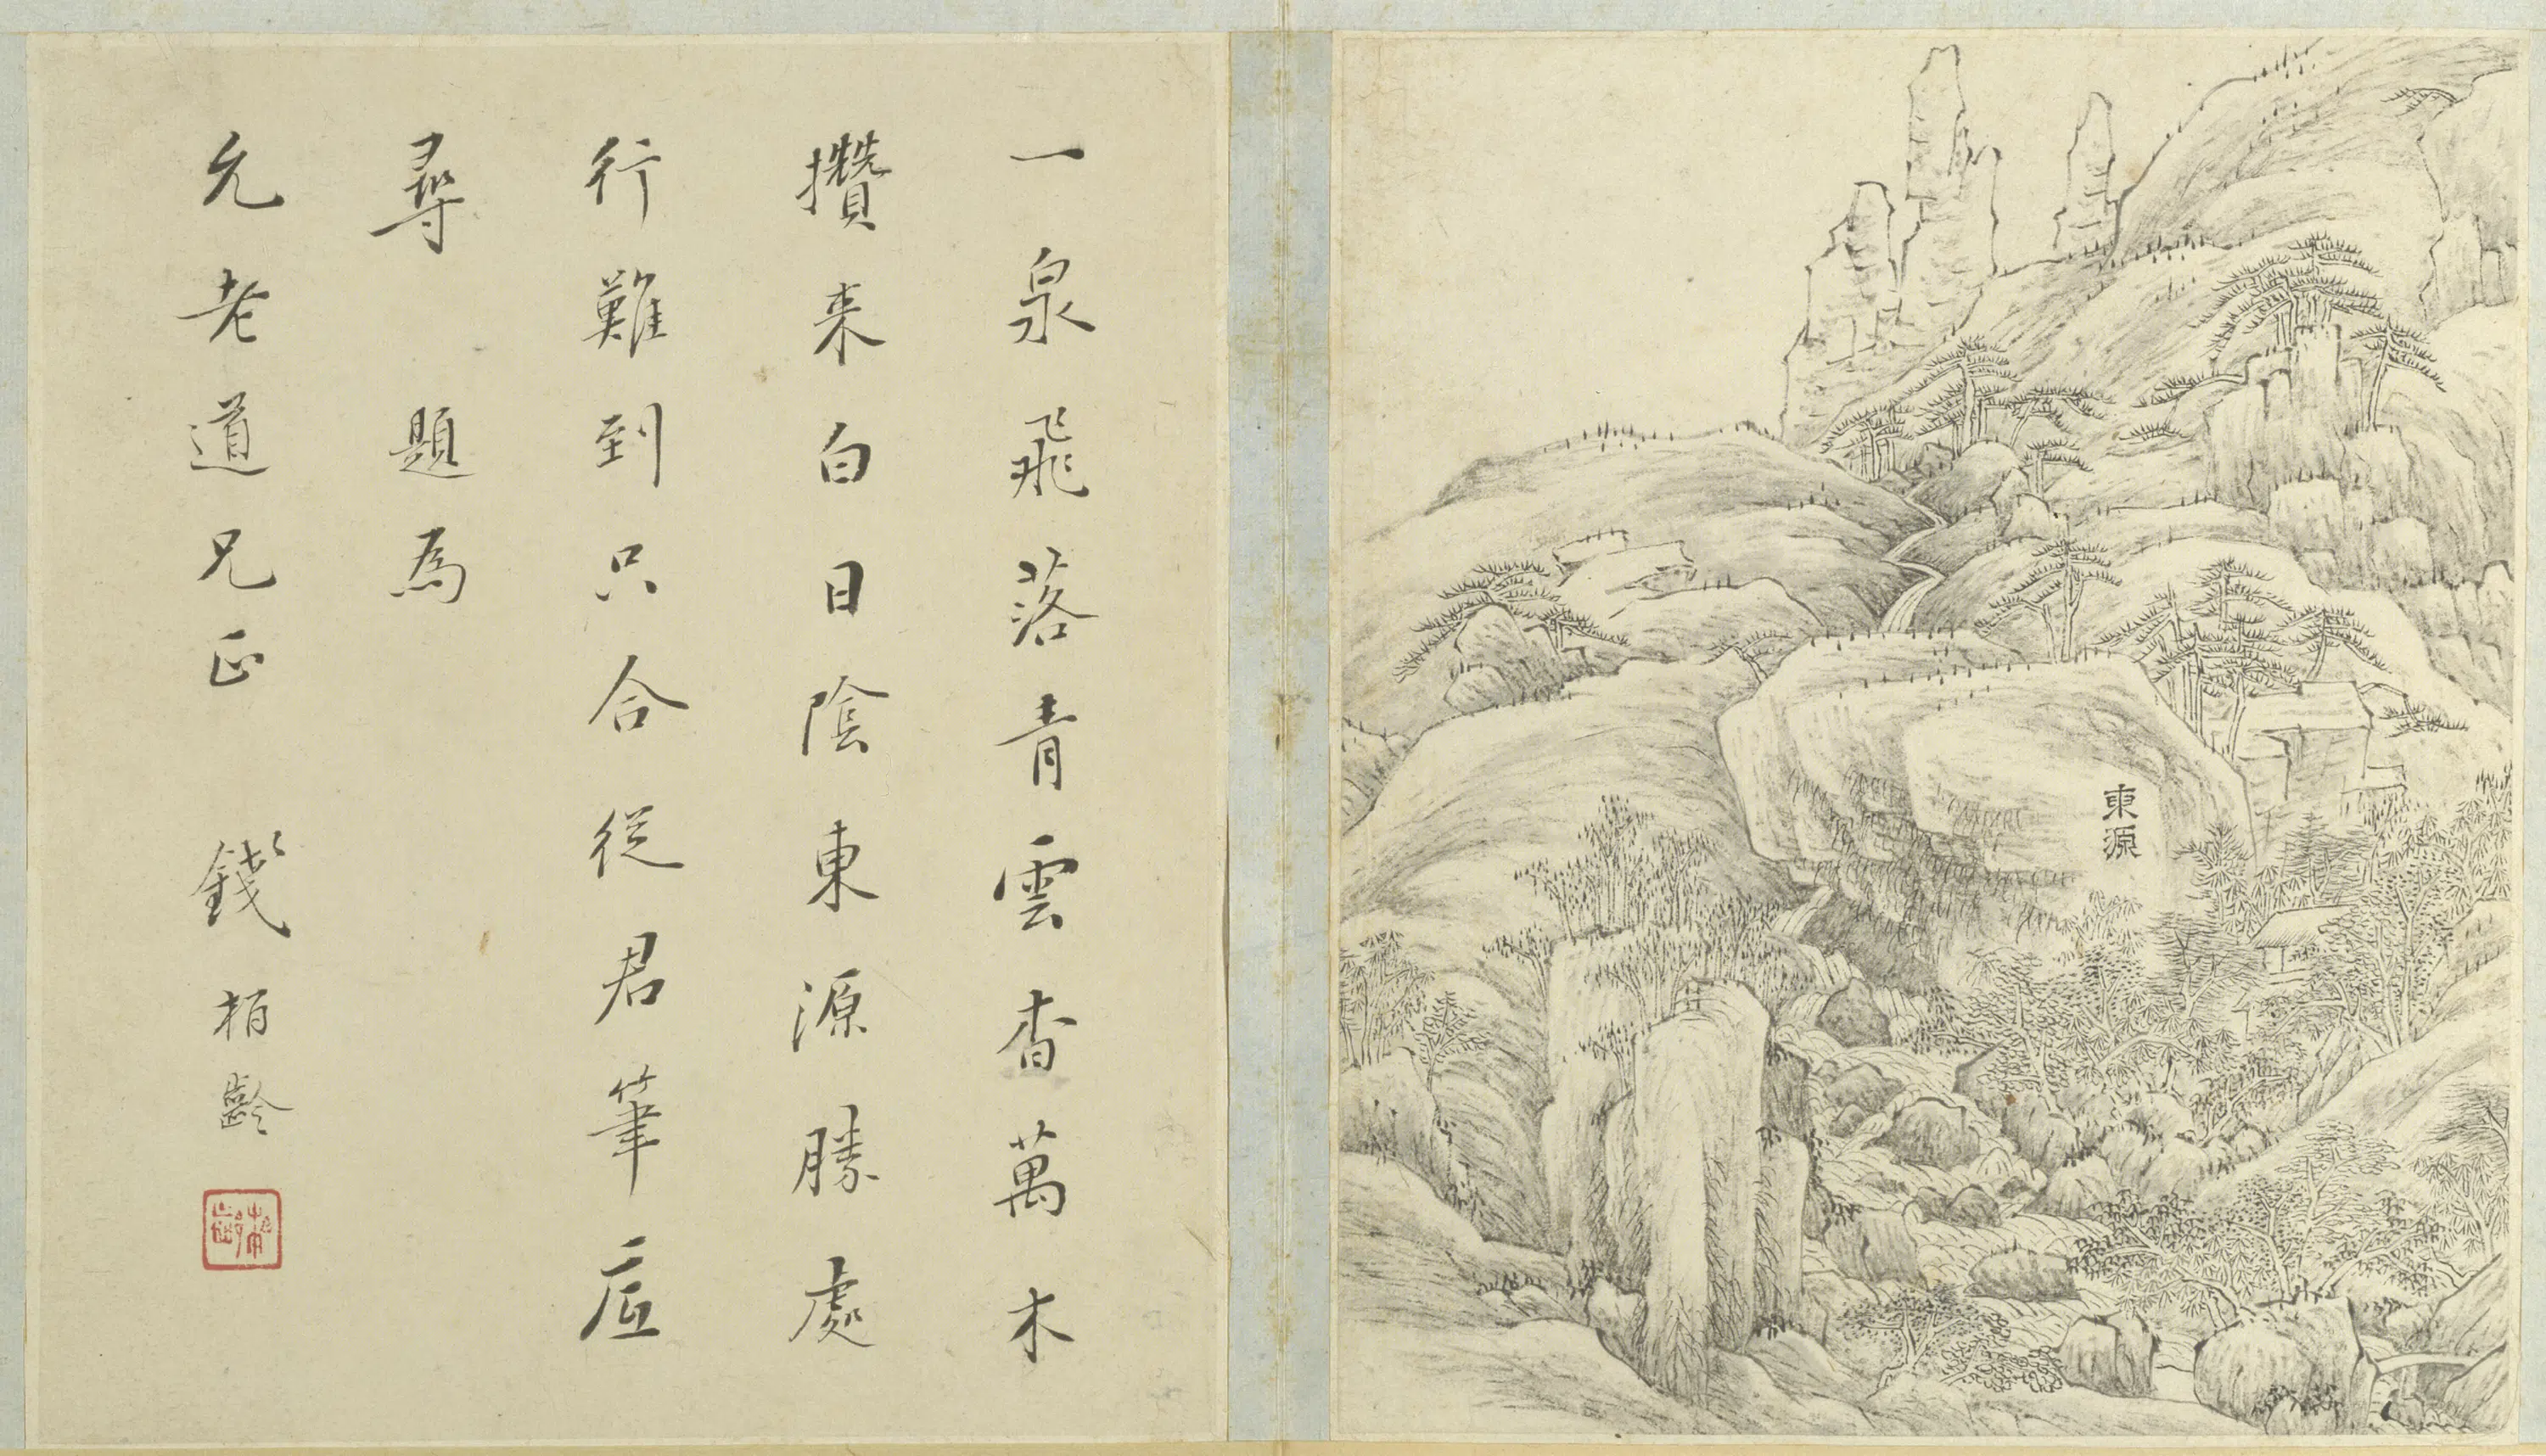 東源
一泉飛落青雲杳萬木
攢来白日陰東源勝處
行難到只合從君筆底
尋 題為
允老道兄正 錢栢齡